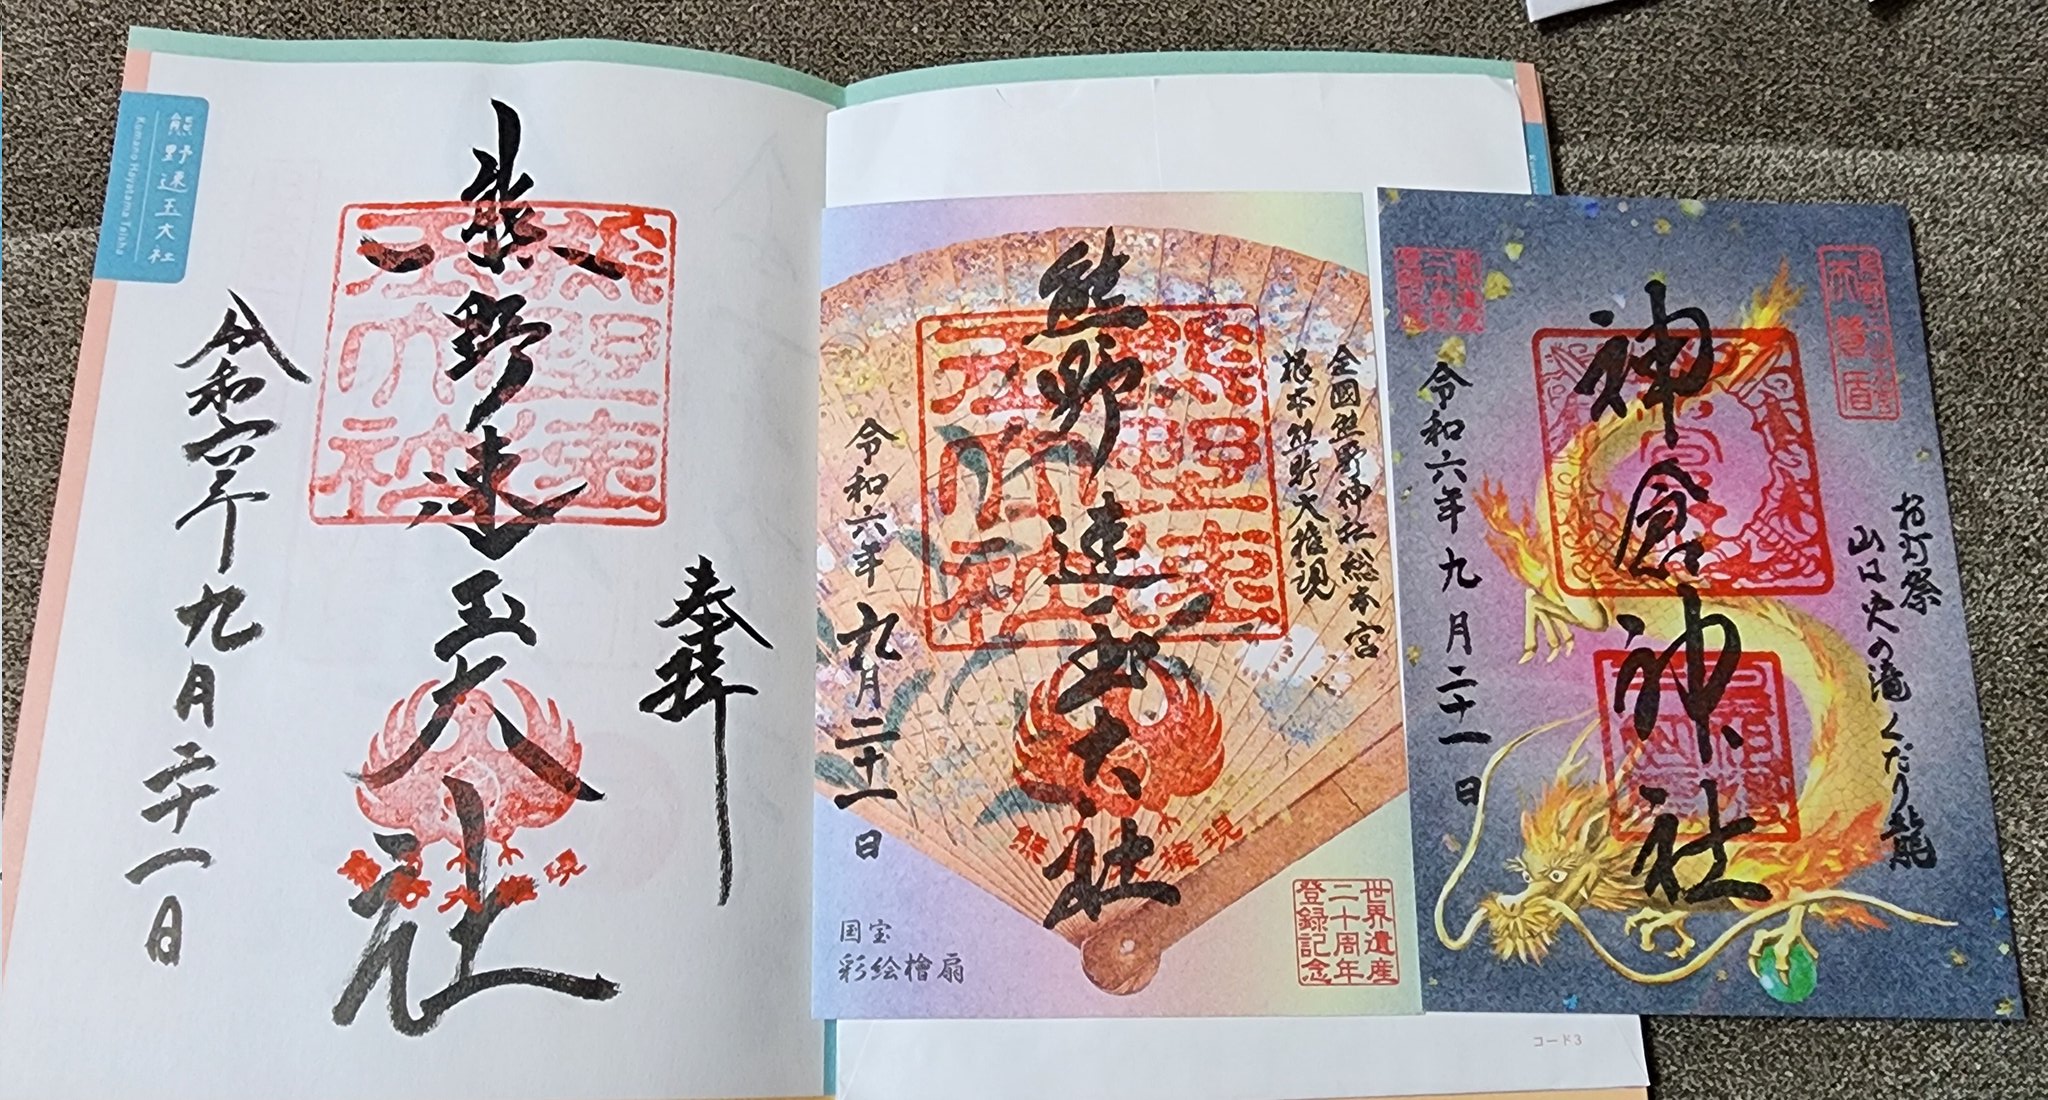 熊野速玉大社
Kumano Hayatama Taisha
奉拝
熊野速玉大社
熊野速玉大社
令和六年九月二十一日
全國熊野神社総本宮
根本熊野大権現
熊野速玉大社
熊野速玉大社
令和六年九月二十一日
国宝
彩絵檜扇
世界遺産
二十周年
登録記念
お灯祭
山は火の滝くだり龍
神倉神社
令和六年九月二十一日
世界遺産
二十周年
登録記念
コード3